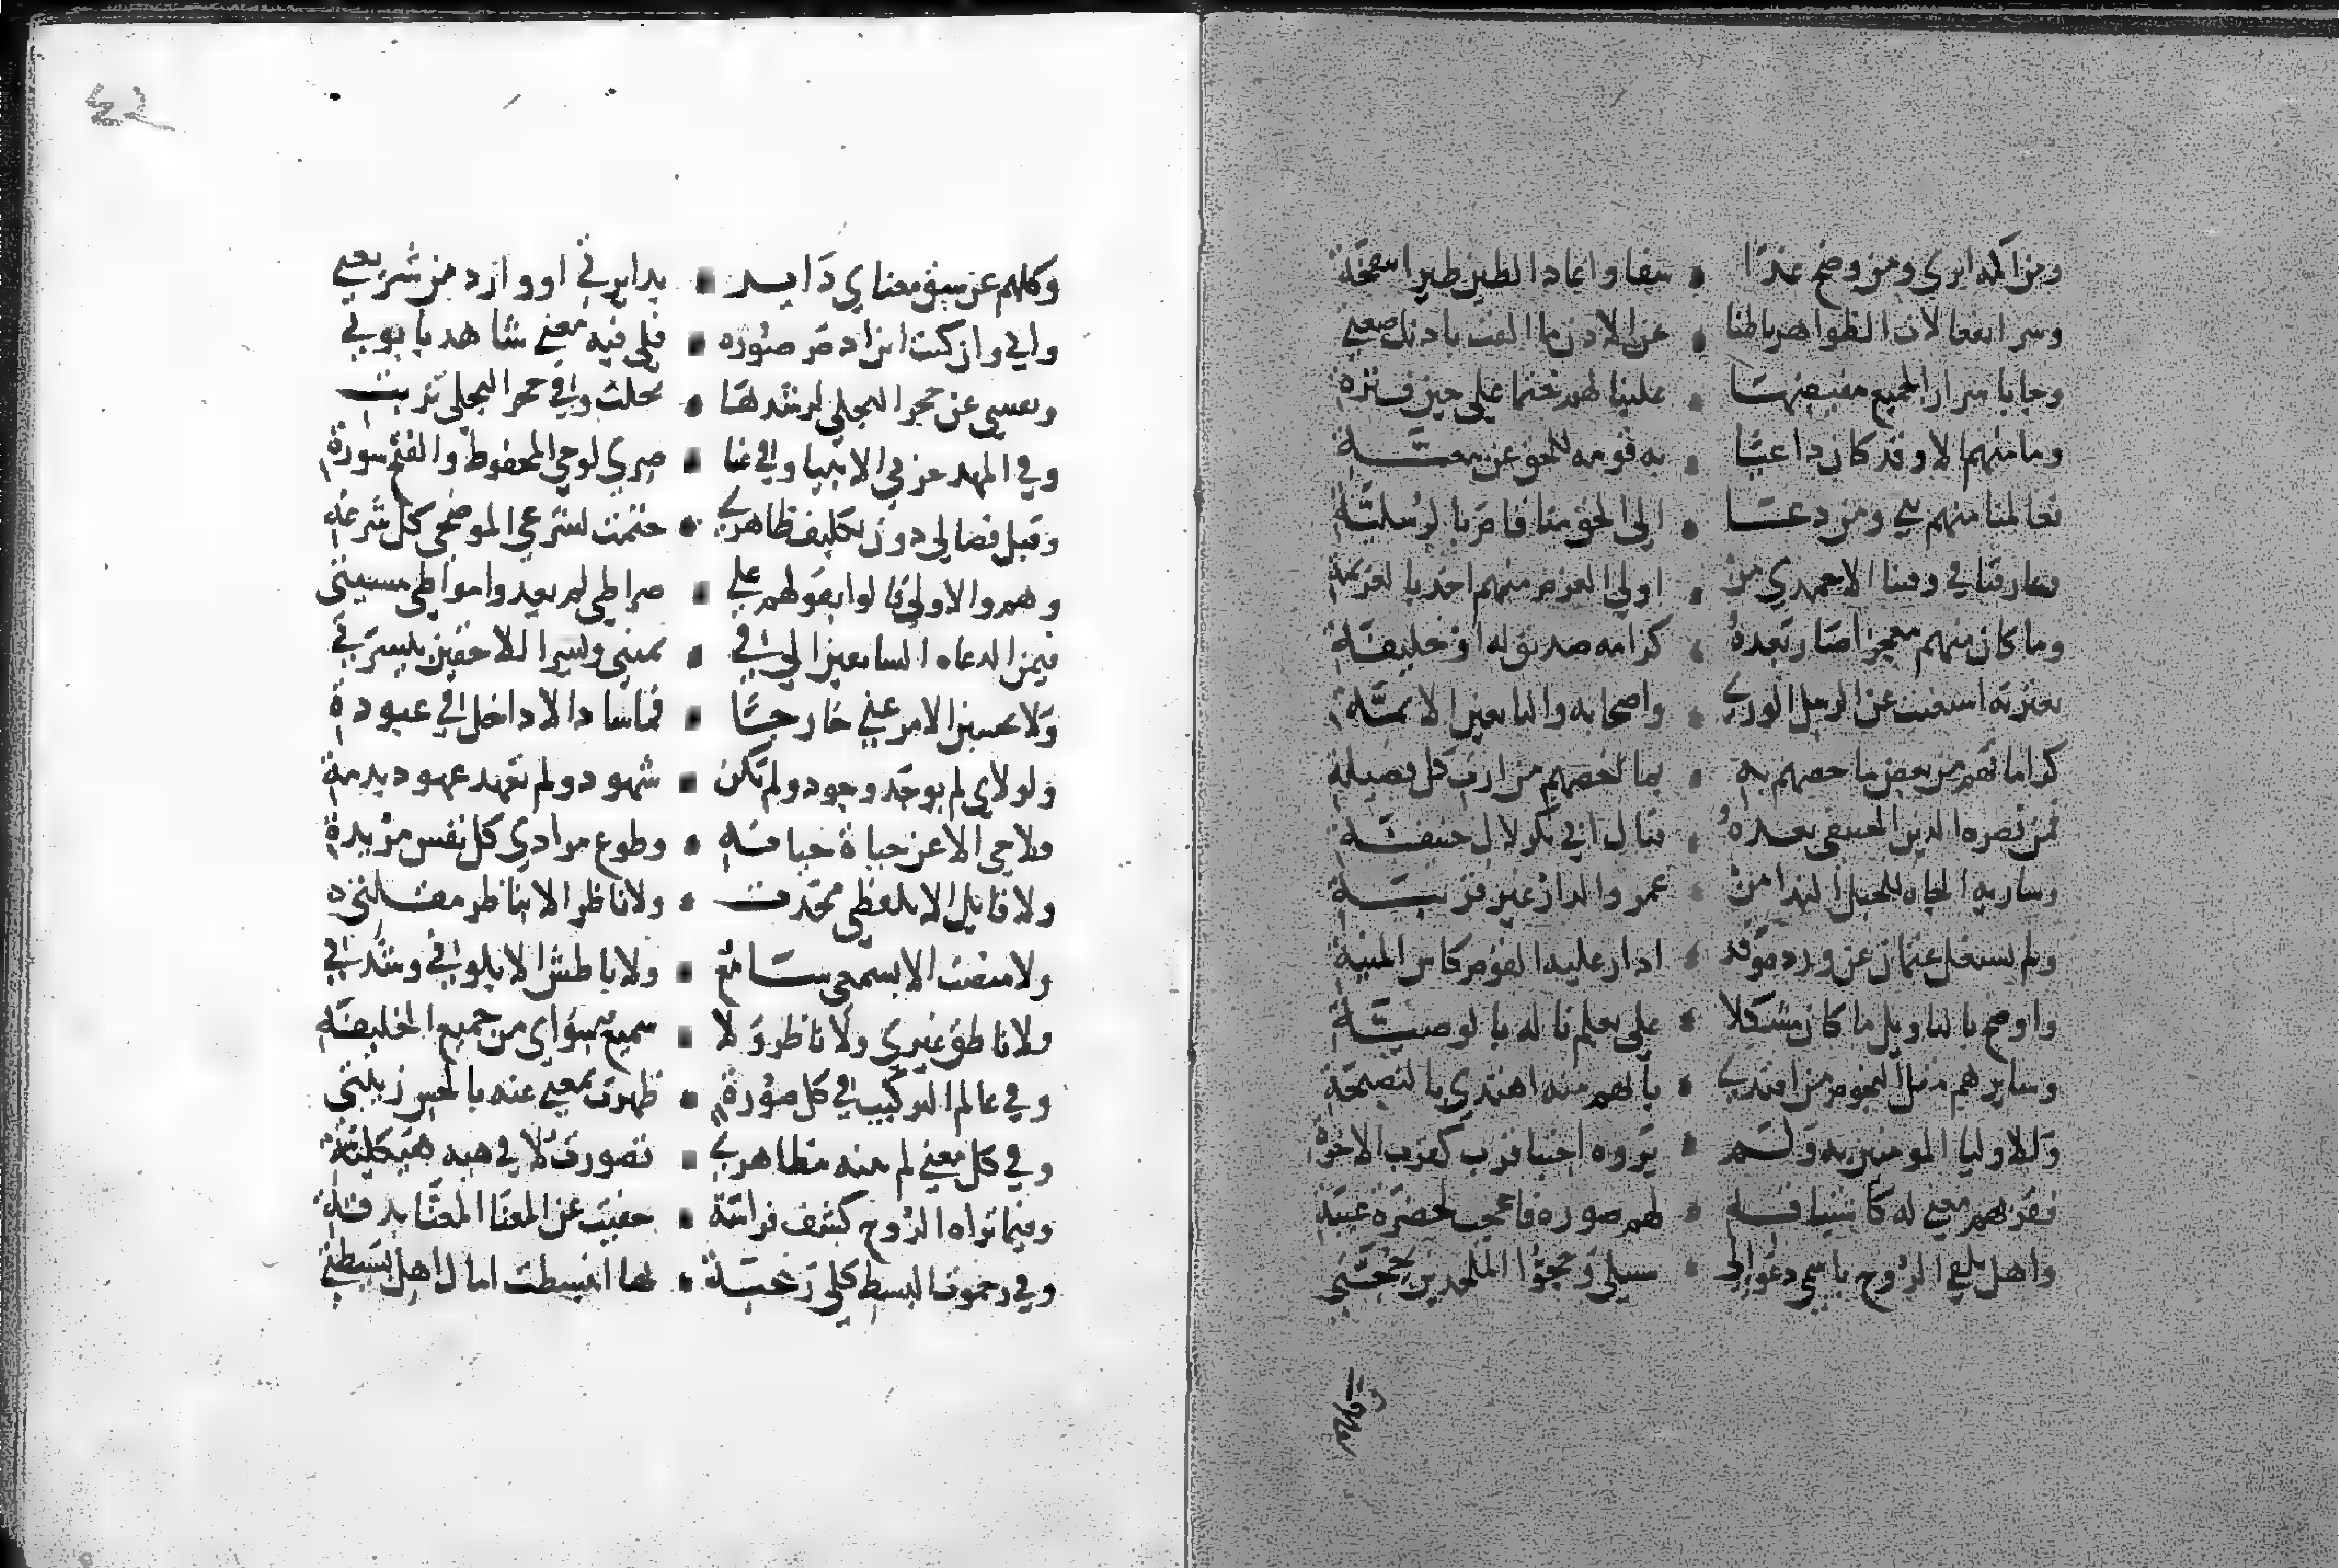 ومن اكمه ابرى ومن وضح عدا • شفا واعاد الطين طيرا بنفخة
وسر انفعالات الظواهر باطنا • عن الاذن ما القت باذنك صيغتي
وجا باسرار الجميع مفيضها • علينا لهم ختما على حين فترة
وما منهم الا وقد كان داعيا • به قومه للحق عن تبعية
فعالمنا منهم نبي ومن دعا • الى الحق منا قام بالرسلية
وعارفنا في وقتنا الاحمدي من • اولي العزم منهم اخذ بالعزيمة
وما كان منهم معجزا صار بعده • كرامة صديق له او خليفة
بعترته استغنت عن الرسل الورى • واصحابه والتابعين الايمة
كراماتهم من بعض ما خصهم به • بما خصهم من ارث كل فضيلة
فمن نصرة الدين الحنيفي بعده • قتال ابي بكر لال حنيفة
وسارية الجاه للجبل الندا من • عمر والدار غير قريبة
ولم يشتغل عثمان عن ورده وقد • ادار عليه القوم كاس المنية
واوضح بالتاويل ما كان مشكلا • علي بعلم ناله بالوصية
وسايرهم مثل النجوم من اقتدى • بايهم منه اهتدى بالنصيحة
وللاوليا المومنين به ولم • يروه اجتنا قرب كقرب الاخوة
فقربهم معنى له كاشتياقه • لهم صورة فاعجب لحضرة غيبة
واهل تلقى الروح باسمي دعوا الى • سبيلي وحجوا الملحدين بحجتي
وكلهم
وكلهم عن سبق معناي داير • بدايرتي او وارد من شريعتي
واني وان كنت ابن ادم صورة • فلي فيه معنى شاهد بابوتي
ونفسي عن حجر التجلي برشدها • تحلت وفي حجر التجلي تربت
وفي المهد حزبي الانبيا وفي عنا • صري لوحي المحفوظ والفتح سورتي
وقبل فصالي دون تكليف ظاهري • ختمت بشرعي الموضحي كل شرعة
وهم والاولى قالوا بقولهم على • صراطي لم يعدوا مواطي مشيتي
فيمن الدعاة السابعين الي في • يميني ويسر اللاحقين بيسرتي
ولا تحسبن الامر عني خارجا • فما ساد الا داخل في عبودتي
ولولاي لم يوجد وجود ولم يكن • شهود ولم تعهد عهود بذمة
فلا حي الا عن حياتي حياته • وطوع مرادي كل نفس مريدة
ولا قايل الا بلفظي محدث • ولا ناظر الا بناظر مقلتي
ولا منصت الا بسمعي سامع • ولا باطش الا بايدي وشدتي
ولا ناطق غيري ولا ناظر ولا • سميع سواي من جميع الخليقة
وفي عالم التركيب في كل صورة • ظهرت بمعنى عنه بالحسن زينتي
وفي كل معنى لم تبنه مظاهري • تصورت لا في هيه هيكلية
وفيما تراه الروح كشف فراسة • خفيت عن المعنى المعنا بدقة
وفي رحموت البسط كلي رغبة • بها انبسطت امال اهل بسيطتي